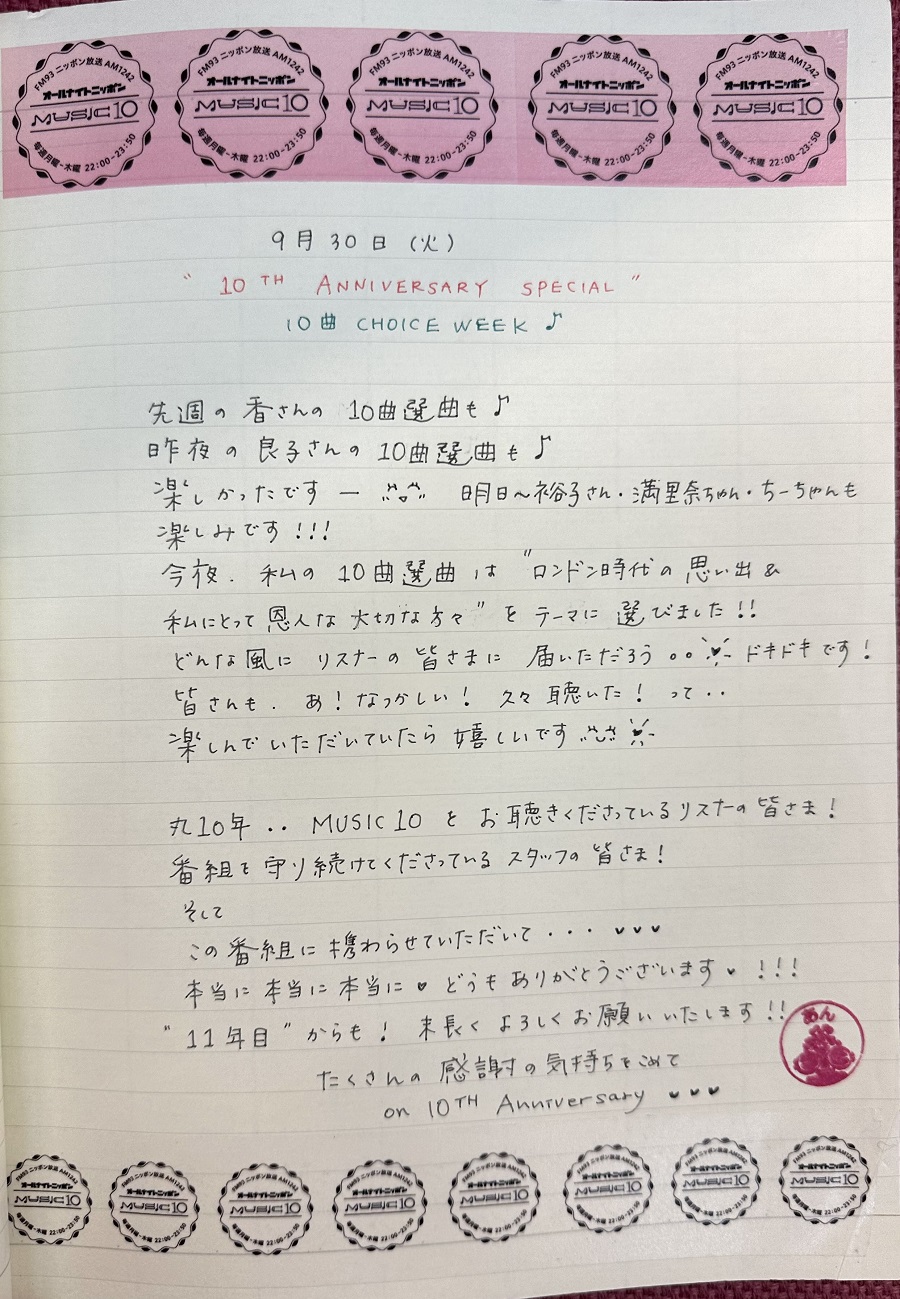 FM93 ニッポン放送 AM1242
オールナイトニッポン
MUSIC10
毎週月曜-木曜 22:00-23:50
FM93 ニッポン放送 AM1242
オールナイトニッポン
MUSIC10
毎週月曜-木曜 22:00-23:50
FM93 ニッポン放送 AM1242
オールナイトニッポン
MUSIC10
毎週月曜-木曜 22:00-23:50
FM93 ニッポン放送 AM1242
オールナイトニッポン
MUSIC10
毎週月曜-木曜 22:00-23:50
FM93 ニッポン放送 AM1242
オールナイトニッポン
MUSIC10
毎週月曜-木曜 22:00-23:50
9月30日(火)
"10TH ANNIVERSARY SPECIAL"
10曲 CHOICE WEEK♪
先週の香さんの10曲選曲も♪
昨夜の良子さんの10曲選曲も♪
楽しかったですー 明日〜裕子さん・満里奈ちゃん・ちーちゃんも
楽しみです!!!
今夜. 私の10曲選曲は "ロンドン時代の思い出&
私にとって恩人な大切な方々"をテーマに選びました!!
どんな風にリスナーの皆さまに届いただろう。。ドキドキです!
皆さんも. あ!なつかしい! 久々聴いた!って..
楽しんでいただいていたら嬉しいです
丸10年.. MUSIC10をお聴きくださっているリスナーの皆さま!
番組を守り続けてくださっているスタッフの皆さま!
そして
この番組に携わらせていただいて...♥♥♥
本当に本当に本当に♥どうもありがとうございます♥!!!
"11年目"からも! 末長くよろしくお願いいたします!!
あん
たくさんの感謝の気持ちをこめて
on 10TH Anniversary ♥♥♥
FM93 ニッポン放送 AM1242
オールナイトニッポン
MUSIC10
毎週月曜-木曜 22:00-23:50
FM93 ニッポン放送 AM1242
オールナイトニッポン
MUSIC10
毎週月曜-木曜 22:00-23:50
FM93 ニッポン放送 AM1242
オールナイトニッポン
MUSIC10
毎週月曜-木曜 22:00-23:50
FM93 ニッポン放送 AM1242
オールナイトニッポン
MUSIC10
毎週月曜-木曜 22:00-23:50
FM93 ニッポン放送 AM1242
オールナイトニッポン
MUSIC10
毎週月曜-木曜 22:00-23:50
FM93 ニッポン放送 AM1242
オールナイトニッポン
MUSIC10
毎週月曜-木曜 22:00-23:50
FM93 ニッポン放送 AM1242
オールナイトニッポン
MUSIC10
毎週月曜-木曜 22:00-23:50
FM93 ニッポン放送 AM1242
オールナイトニッポン
MUSIC10
毎週月曜-木曜 22:00-23:50